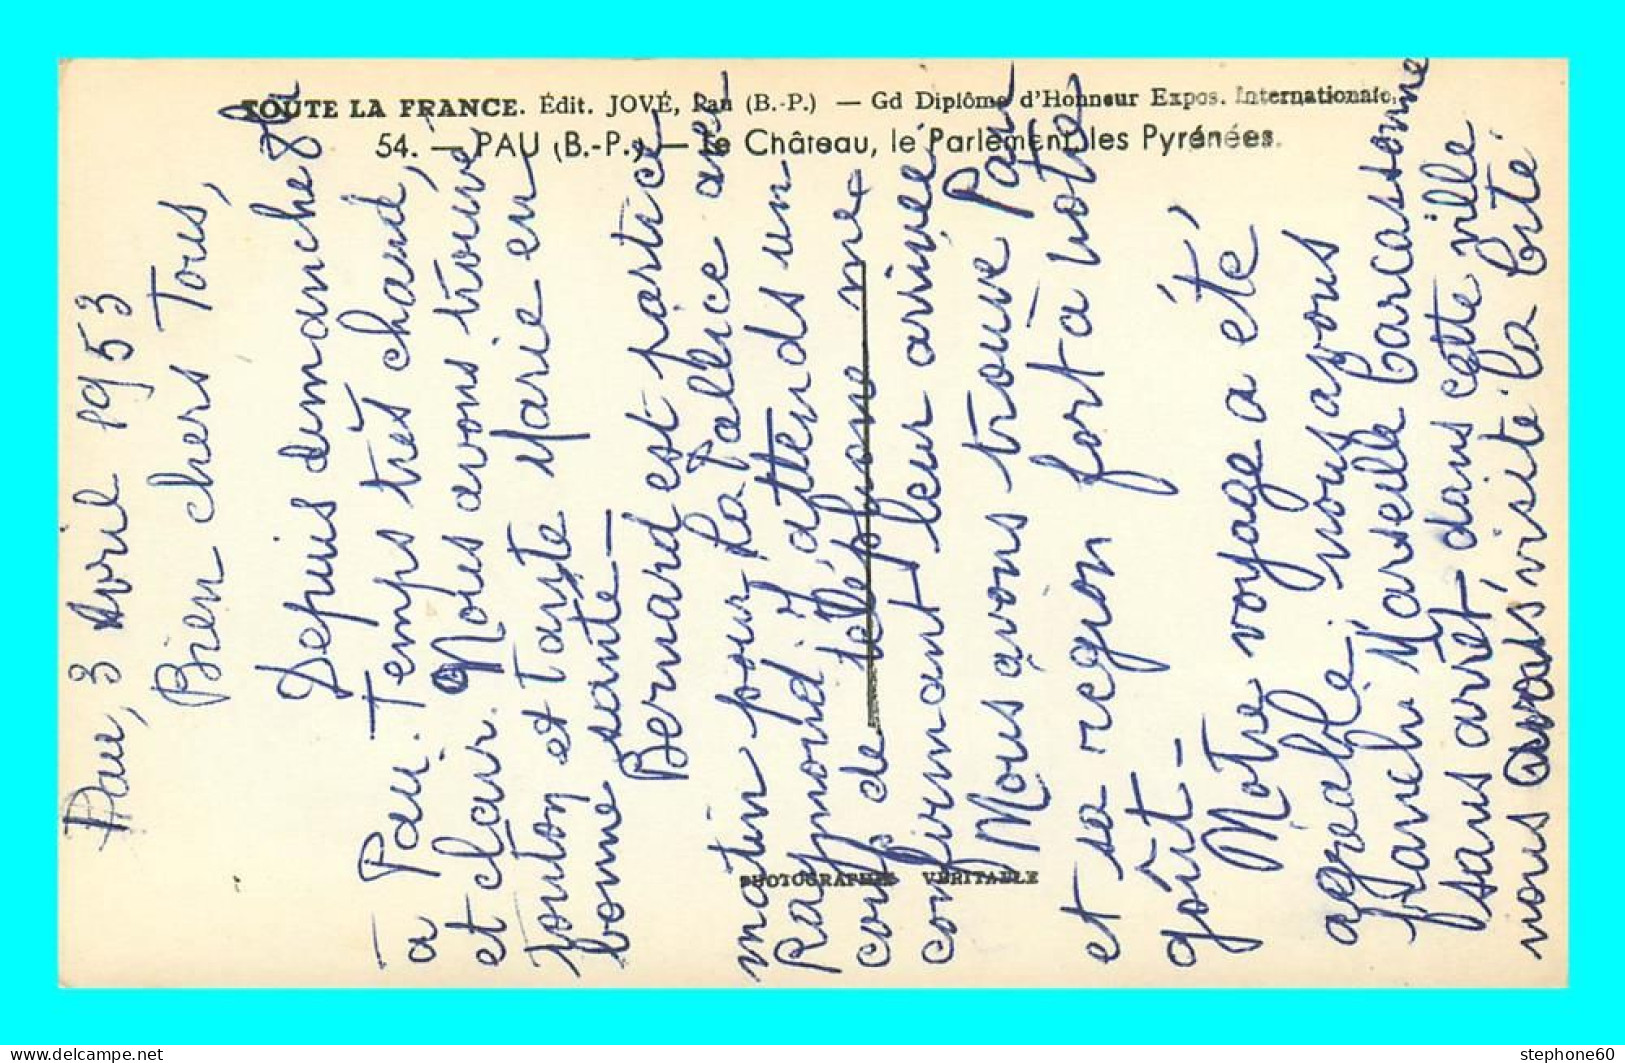 TOUTE LA FRANCE. Édit. JOVÉ, Pau (B.-P.) — Gd Diplôme d'Honneur Expos. Internationale.
54. — PAU (B.-P.) — Le Château, le Parlement, les Pyrénées.
PHOTOGRAPHIE VÉRITABLE
Pau, 3 Avril 1953
Bien chers Tous,
Depuis dimanche
à Pau. Temps très chaud,
et clair. Nous avons trouvé
tonton et tante Marie en
bonne santé —
Bernard est partice
matin pour La Pallice avec
Raymond il attends un
coup de téléphone me
confirmant leur arrivée
Nous avons trouvé Pau
et sa region fort à notre
goût —
Notre voyage a été
agréable, nous avons
franchi Marseille Carcassonne
sans arrêt, dans cette ville
nous avons visité la Cité.
stephone60